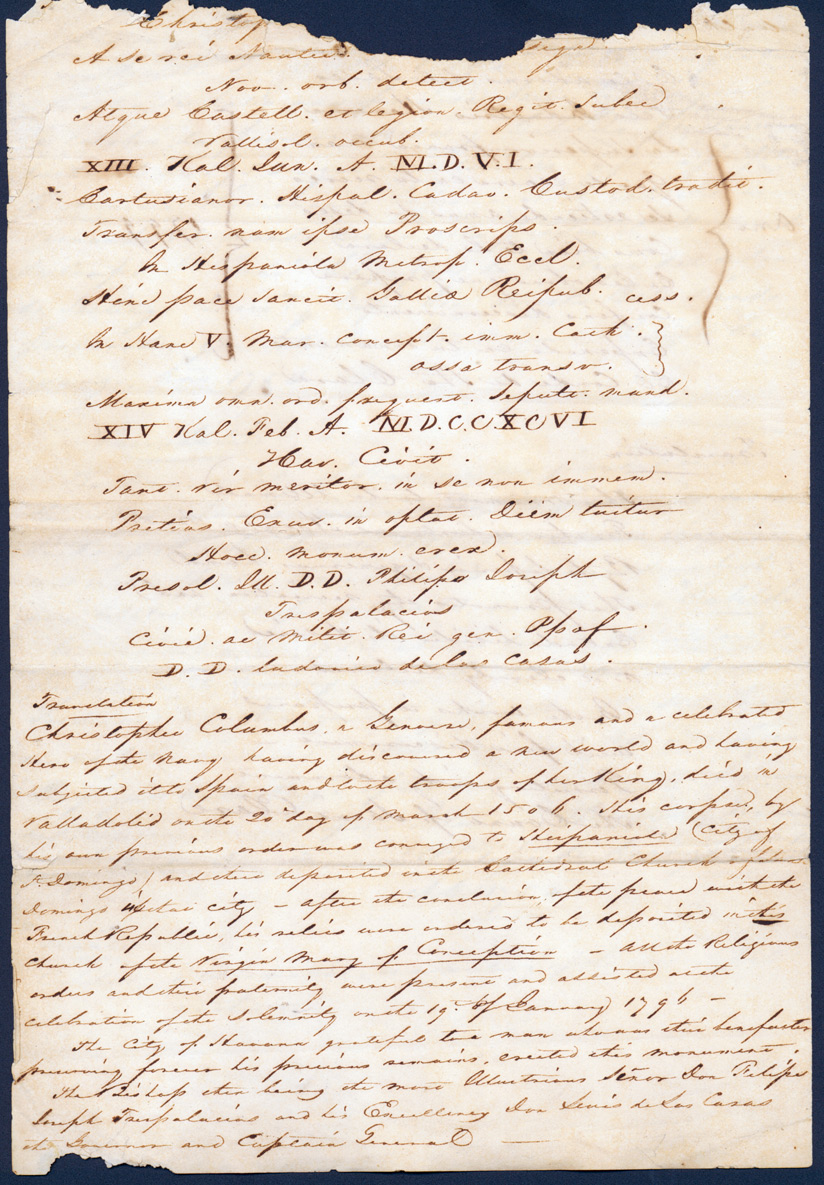 Christop
A se rei Nautic
Nov. orb. detect.
Atque Castell. et legion. Regit. Subec
Vallisol. occub.
XIII. Kal. Iun. A. M.D.V.I.
Cartusianor. Hispal. Cadav. Custod. tradit.
Transfer. nam ipse Proscrips.
In Hispaniola Metrop. Eccl.
Hinc pace sancit. Galliæ Reipub. cess.
In Hanc V. Mar. concept. imm. Cath.
ossa transv.
Maxima omn. ord. frequent. Sepult. mand.
XIV Kal. Feb. A. M.D.C.C.XCVI
Hav. Civit.
Tant. vir meritor. in se non immem.
Pretios. Exuv. in optat. Diem tuitur
Hocc. monum. erex.
Presol. Ill. D.D. Philipo Ioseph
Trespalacios
Civic. ac Milit. Rei gen. Ppæf.
D. D. Ludovico de las Casas.
Translation
Christopher Columbus, a Genoese, famous and a celebrated
Hero of the Navy having discovered a new world and having
subjected it to Spain and to the troops of her King, died in
Valladolid on the 20 day of March 1506. His corpse, by
his own previous order was conveyed to Hispaniola (City of
St. Domingo) and there deposited in the Cathedral Church of
Domingo city – after the conclusion of the peace with the
French Republic, his relics were ordered to be deposited in this
Church of the Virgin Mary of Conception – all the Religious
orders and their fraternity were present and assisted at the
celebration of the solemnity on the 19th of January 1796 –
The City of Havana grateful to a man who was their benefactor
preserving forever his precious remains, erected this monument.
The Bishop then being the most Illustrious Señor Don Filipe
Joseph Trespalacios and his Excellency Don Lewis de Las Casas
the Governor and Captain General –